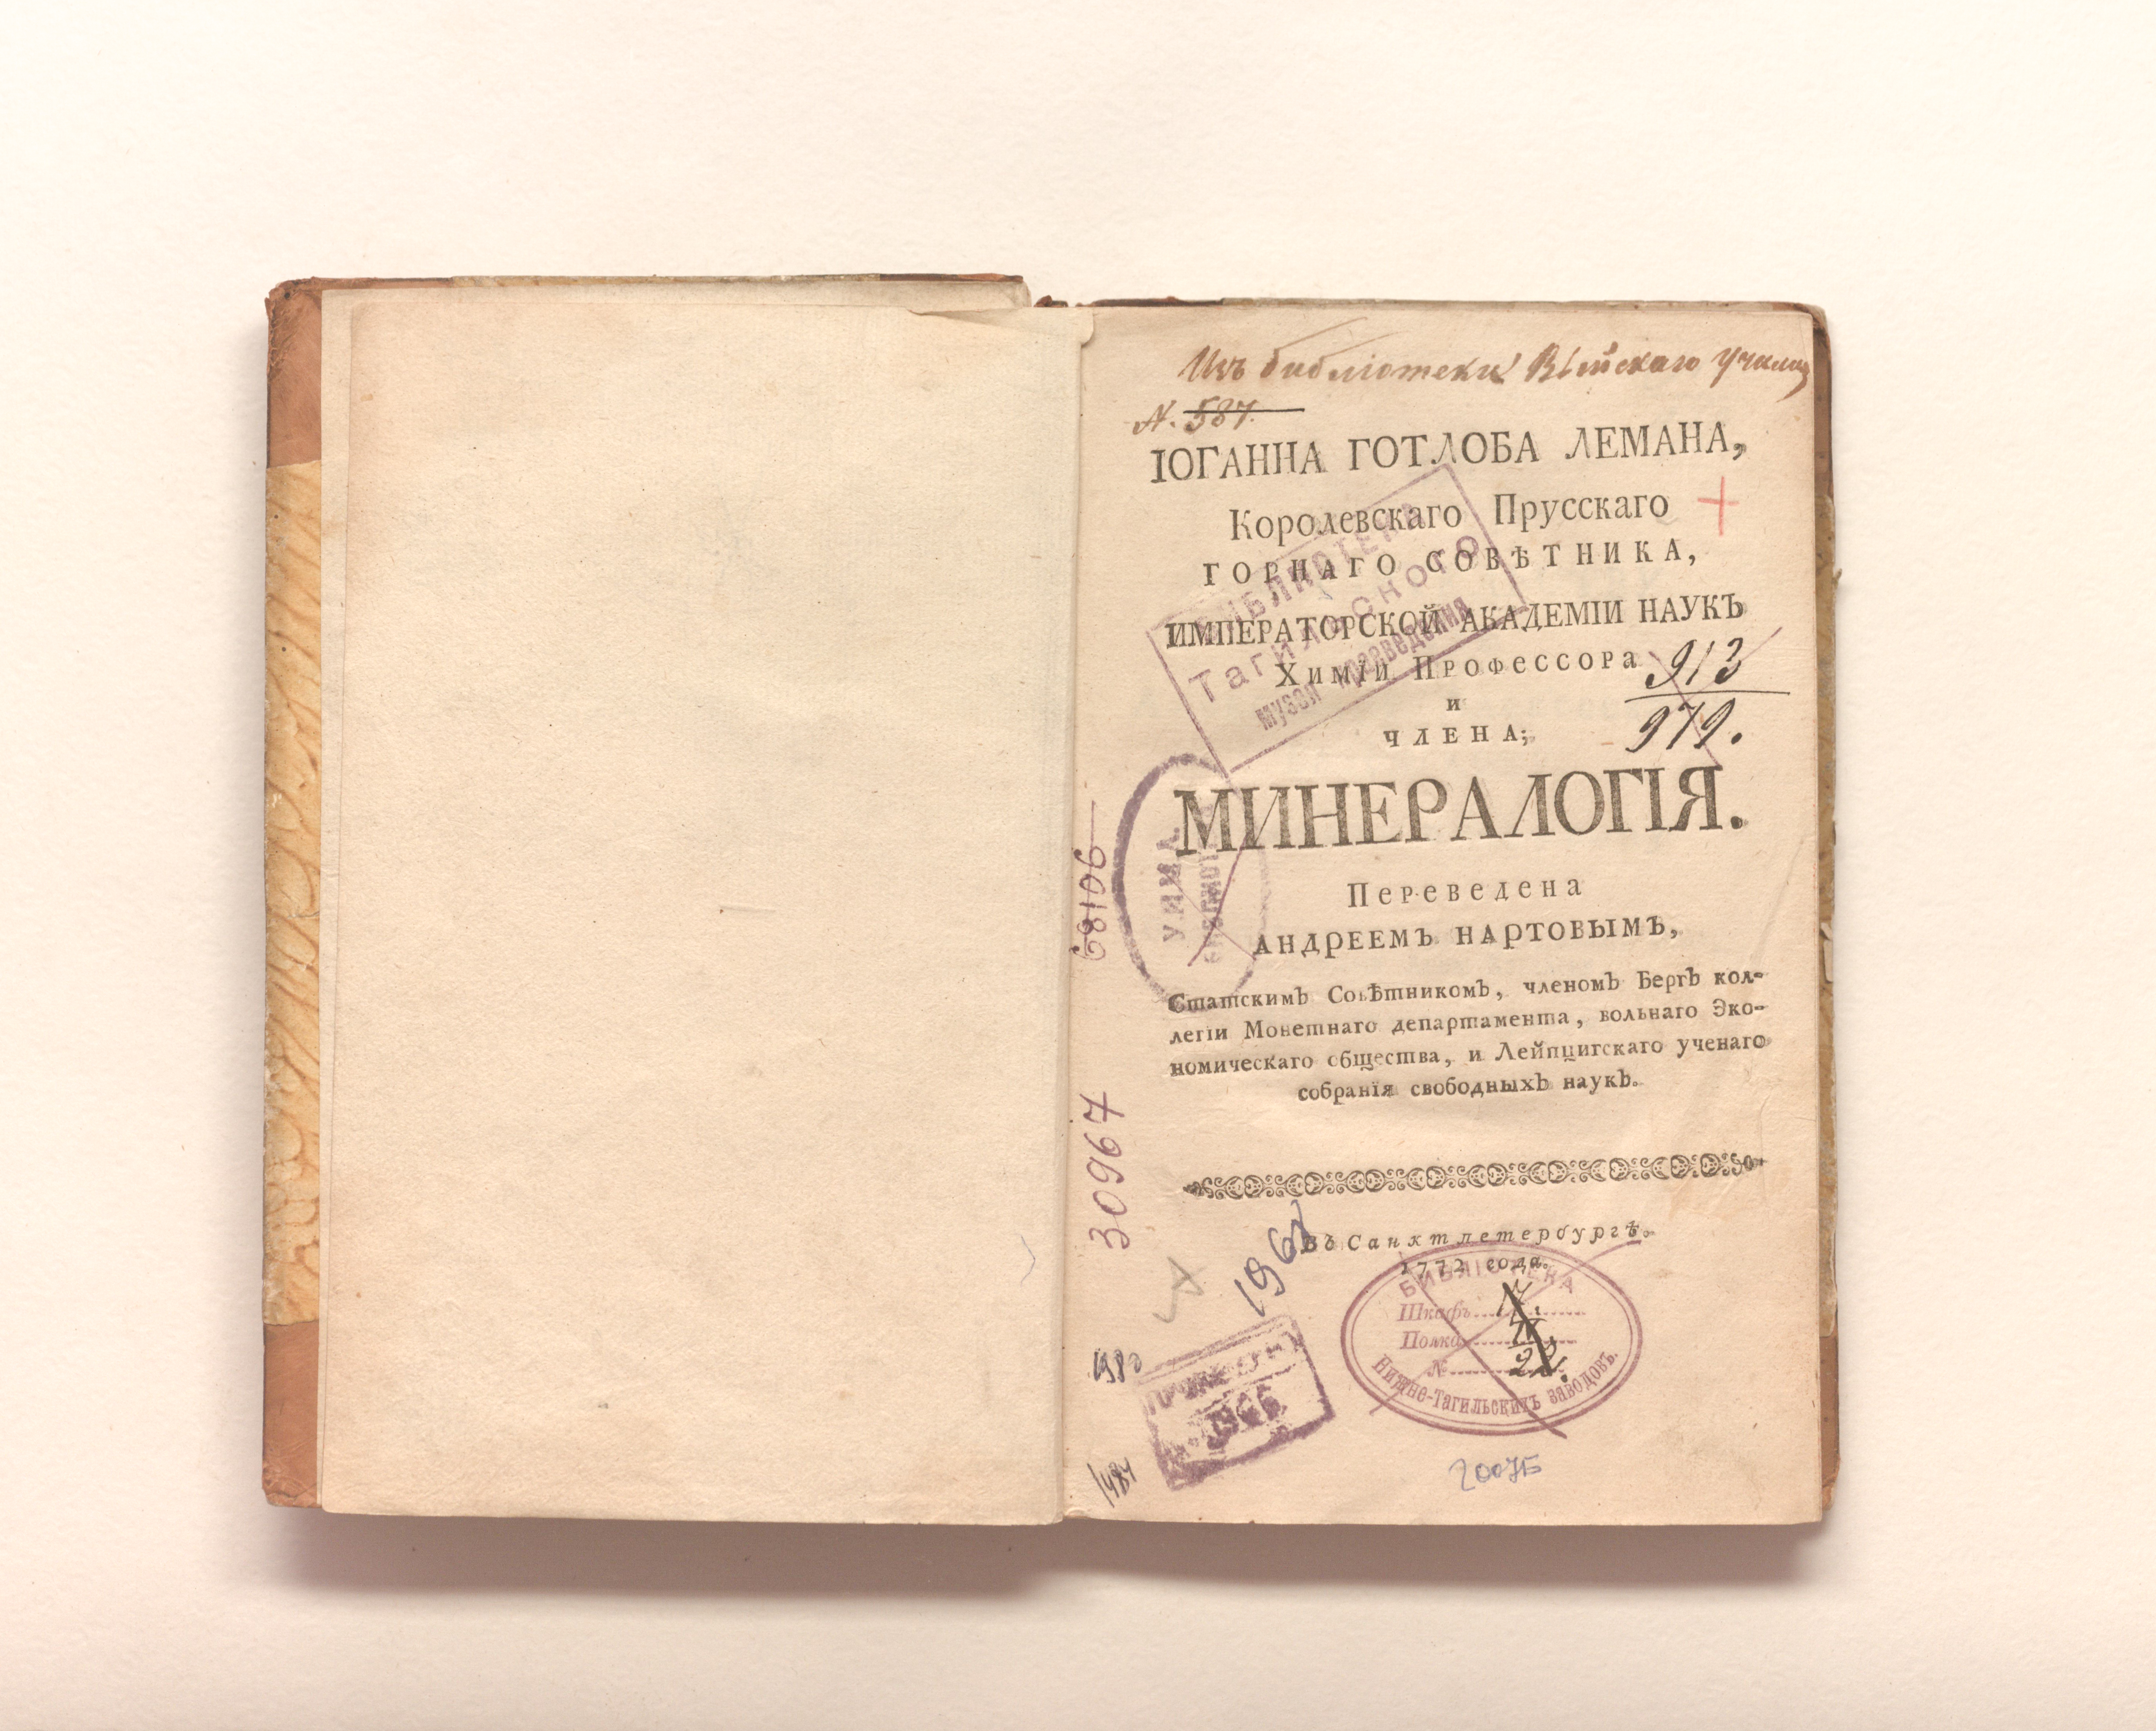 Изъ библіотеки Выйскаго Училищ
N. 587.
ІОГАННА ГОТЛОБА ЛЕМАНА,
Королевскаго Прусскаго
ГОРНАГО СОВѢТНИКА,
ИМПЕРАТОРСКОЙ АКАДЕМІИ НАУКЪ
Химіи Профессора
и
ЧЛЕНА;
913
979.
БИБЛИОТЕКА
Тагильского
музея краеведения
МИНЕРАЛОГІЯ.
Переведена
АНДРЕЕМЪ НАРТОВЫМЪ,
Статскимъ Совѣтникомъ, членомъ Бергъ кол-
легіи Монетнаго департамента, вольнаго Эко-
номическаго общества, и Лейпцигскаго ученаго
собранія свободныхъ наукъ.
68106
30967
Въ Санктпетербургѣ.
1772 года.
БИБЛІОТЕКА
Шкафъ
Полка
№ 22.
Нижне-Тагильскихъ заводовъ.
ПРОВЕРЕНО
1966
2007Б